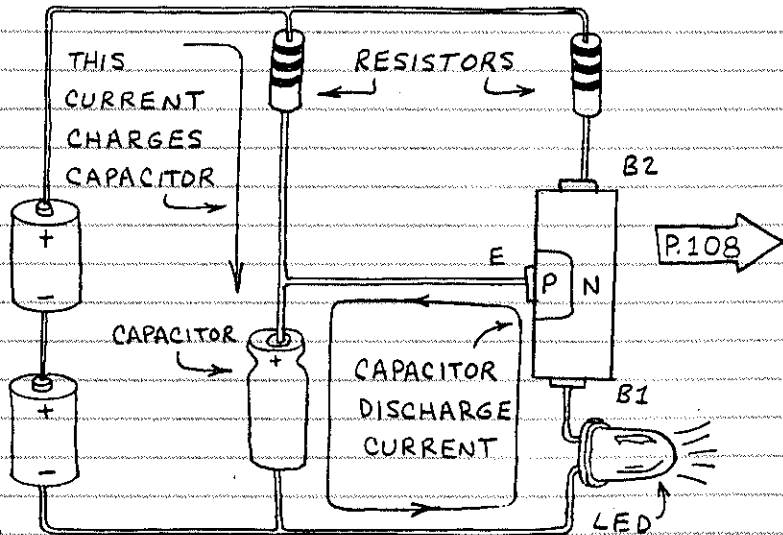 THIS
CURRENT
CHARGES
CAPACITOR
RESISTORS
B2
+
-
E
P N
P.108
CAPACITOR
+
CAPACITOR
DISCHARGE
CURRENT
B1
+
-
LED